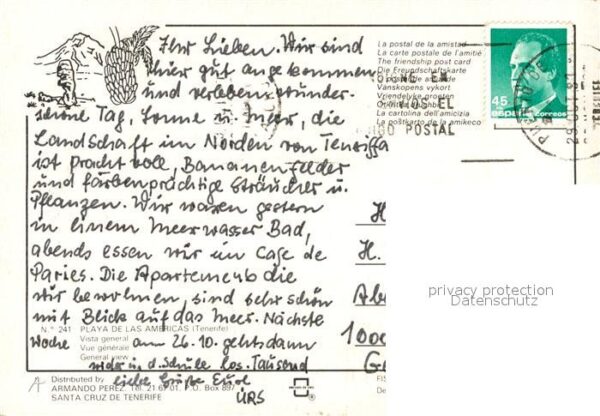 Ihr Lieben. Wir sind
hier gut angekommen
und verleben wunder-
schöne Tag, Sonne u. Meer, die
Landschaft im Norden von Teneriffa
ist prachtvoll, Bananenfelder
und farbenprächtige Sträucher u.
Pflanzen. Wir waren gestern
in einem Meerwasser Bad,
abends essen wir im Cafe de
Paries. Die Apartements die
wir bewohnen, sind sehr schön
mit Blick auf das Meer. Nächste
Woche am 26.10. gehts dann
wider in d. Schule los. Tausend
liebe Grüße Eure
URS
La postal de la amistad
La carte postale de l'amitié
The friendship post card
Die Freundschaftskarte
Vanskapens vykort
Vriendelyke groeten
La cartolina dell'amicizia
La poŝtkarto de la amikeco
POSTAL
45
españa
correos
H.
H.
1000
privacy protection
Datenschutz
N.º 241 PLAYA DE LAS AMERICAS (Tenerife)
Vista general
Vue générale
General view
Distributed by
ARMANDO PEREZ. Tel. 21.62.01. P.O. Box 897
SANTA CRUZ DE TENERIFE